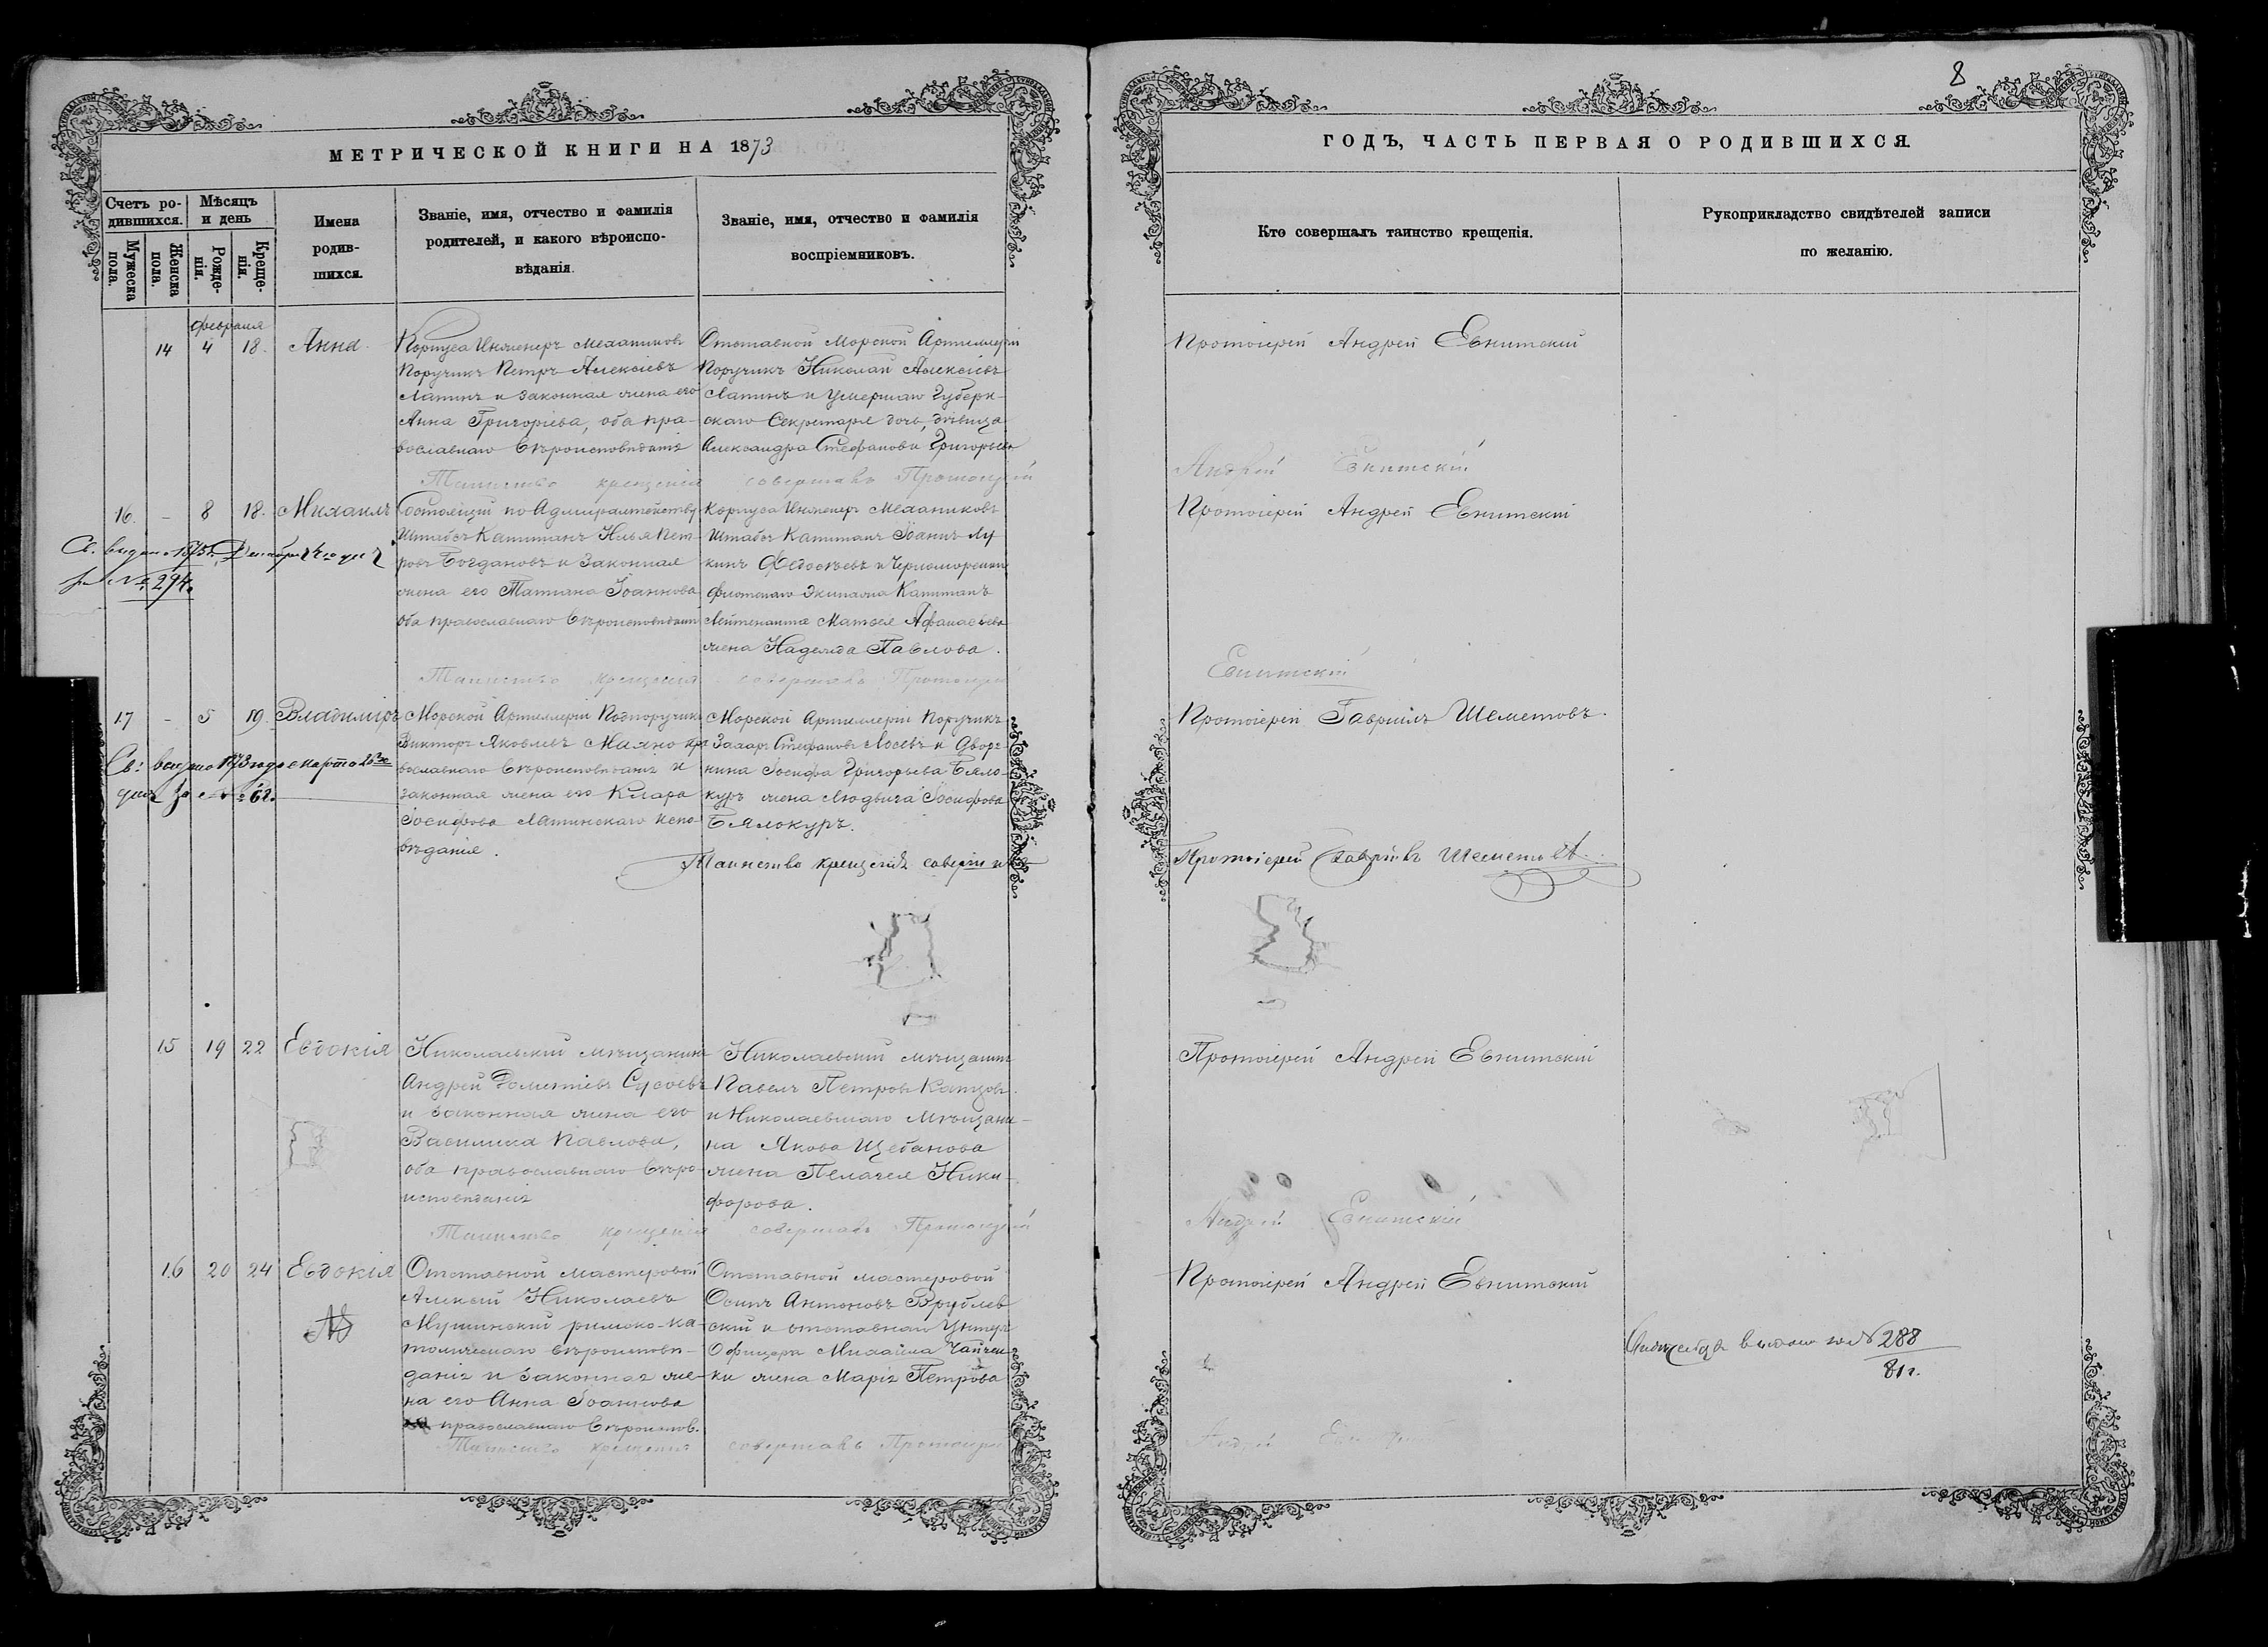 МЕТРИЧЕСКОЙ КНИГИ НА 1873
Счетъ ро-
дившихся.
Мѣсяцъ
и день
Мужеска
пола.
Женска
пола.
Рожде-
нія.
Креще-
нія.
Имена
родив-
шихся.
Званіе, имя, отчество и фамилія
родителей, и какого вѣроиспо-
вѣданія.
Званіе, имя, отчество и фамилія
воспріемниковъ.
февраля
14 4 18. Анна.
Корпуса Инженеръ Механиковъ
Поручикъ Петръ Алексіевъ
Лапинъ и законная жена его
Анна Григоріева, оба пра-
вославнаго вѣроисповѣданія
Отставной Морской Артиллеріи
Поручикъ Николай Алексіевъ
Лапинъ и умершаго Губерн-
скаго Секретаря дочь, дѣвица
Александра Стефанова Григорьева
Таинство крещенія совершалъ Протоіерей
16. - 8 18. Михаилъ
Состоящій по Адмиралтейству
Штабсъ Капитанъ Илья Пет-
ровъ Богдановъ и законная
жена его Татіана Іоаннова
оба православнаго вѣроисповѣданія
Корпуса Инженеръ Механиковъ
Штабсъ Капитанъ Іоаннъ Лу
кинъ Федосѣевъ и Черноморскаго
флотскаго Экипажа Капитанъ
Лейтенанта Матвея Афанасьева
жена Надежда Павлова.
№ 294.
Таинство крещенія совершалъ Протоіерей
17 - 5 19. Владиміръ
Морской Артиллеріи Подпоручикъ
Викторъ Яковлевъ
вославнаго вѣроисповѣданія и
законная жена его Клара
Іосифова Латинскаго испо-
вѣданія.
Морской Артиллеріи Поручикъ
Захаръ Стефановъ Лосевъ и Двор-
нина Іосифа Григорьева Бяло-
куръ жена Людвига Іосифова
Бялокуръ.
Таинство крещенія совершилъ
15 19 22 Евдокія
Николаевскій мѣщанинъ
Андрей Дометіевъ Сусоевъ
и законная жена его
Василиса Павлова,
оба православнаго вѣро-
исповѣданія
Николаевскій мѣщанинъ
Павелъ Петровъ Катцовъ
и Николаевскаго мѣщани-
на Якова Щебанова
жена Пелагея Ники-
форова.
Таинство крещенія совершалъ Протоіерей
16 20 24 Евдокія
Отставной мастеровой
Алексій Николаевъ
Мушинскій римско-ка-
толическаго вѣроисповѣ-
данія и законная же-
на его Анна Іоаннова
православнаго вѣроисповѣд.
Отставной мастеровой
Осипъ Антоновъ Врублев
скій и отставнаго Унтеръ
Офицера Михаила Чайчен-
ки жена Марія Петрова
Таинство крещенія совершалъ Протоіерей
8
ГОДЪ, ЧАСТЬ ПЕРВАЯ О РОДИВШИХСЯ.
Кто совершалъ таинство крещенія.
Рукоприкладство свидѣтелей записи
по желанію.
Протоіерей Андрей Евнитскій
Андрей Евнитскій
Протоіерей Андрей Евнитскій
Евнитскій
Протоіерей Гавріилъ Шеметовъ.
Протоіерей Гавріилъ Шеметовъ
Протоіерей Андрей Евнитскій
Андрей Евнитскій
Протоіерей Андрей Евнитскій
№ 288
81 г.
Андрей